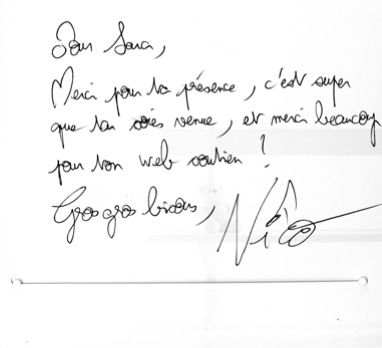 Pour Sara,
Merci pour ta présence, c'est super
que tu sois venue, et merci beaucoup
pour ton web soutien !
Gros gros bisous,
Nico